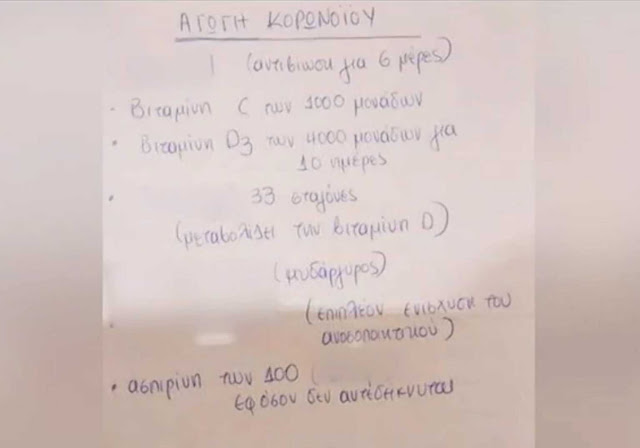 ΑΓΩΓΗ ΚΟΡΩΝΟΪΟΥ
(αντιβιωση για 6 μέρες)
· Βιταμίνη C των 1000 μονάδων
· Βιταμίνη D3 των 4000 μονάδων για
10 ημέρες
· 33 σταγόνες
(μεταβολίζει την βιταμίνη D)
(ψυδάργυρος)
(επιπλέον ενίσχυση του
ανοσοποιητικού)
· ασπιρίνη των 100 (
εφόσον δεν αντεδηκνυται